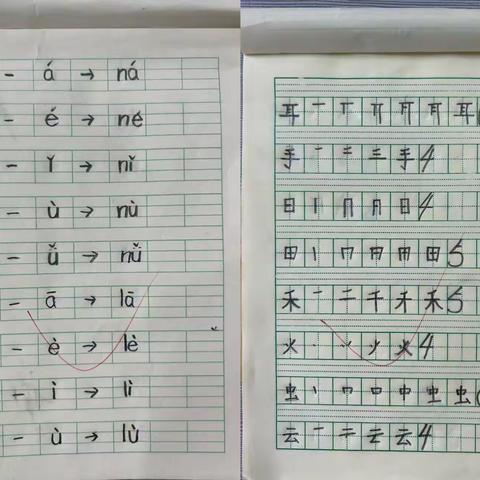 - á → ná
- é → né
- ǐ → nǐ
- ù → nù
- ǚ → nǚ
- ā → lā
- è → lè
- ì → lì
- ù → lù
耳 一 丅 耳
手 二 三 手 4
日 丨 冂 日 4
田 丨 冂 田 5
禾 一 二 千 禾 禾 5
火 丶 火 4
虫 丨 口 中 虫 虫
云 一 二 云 云 4